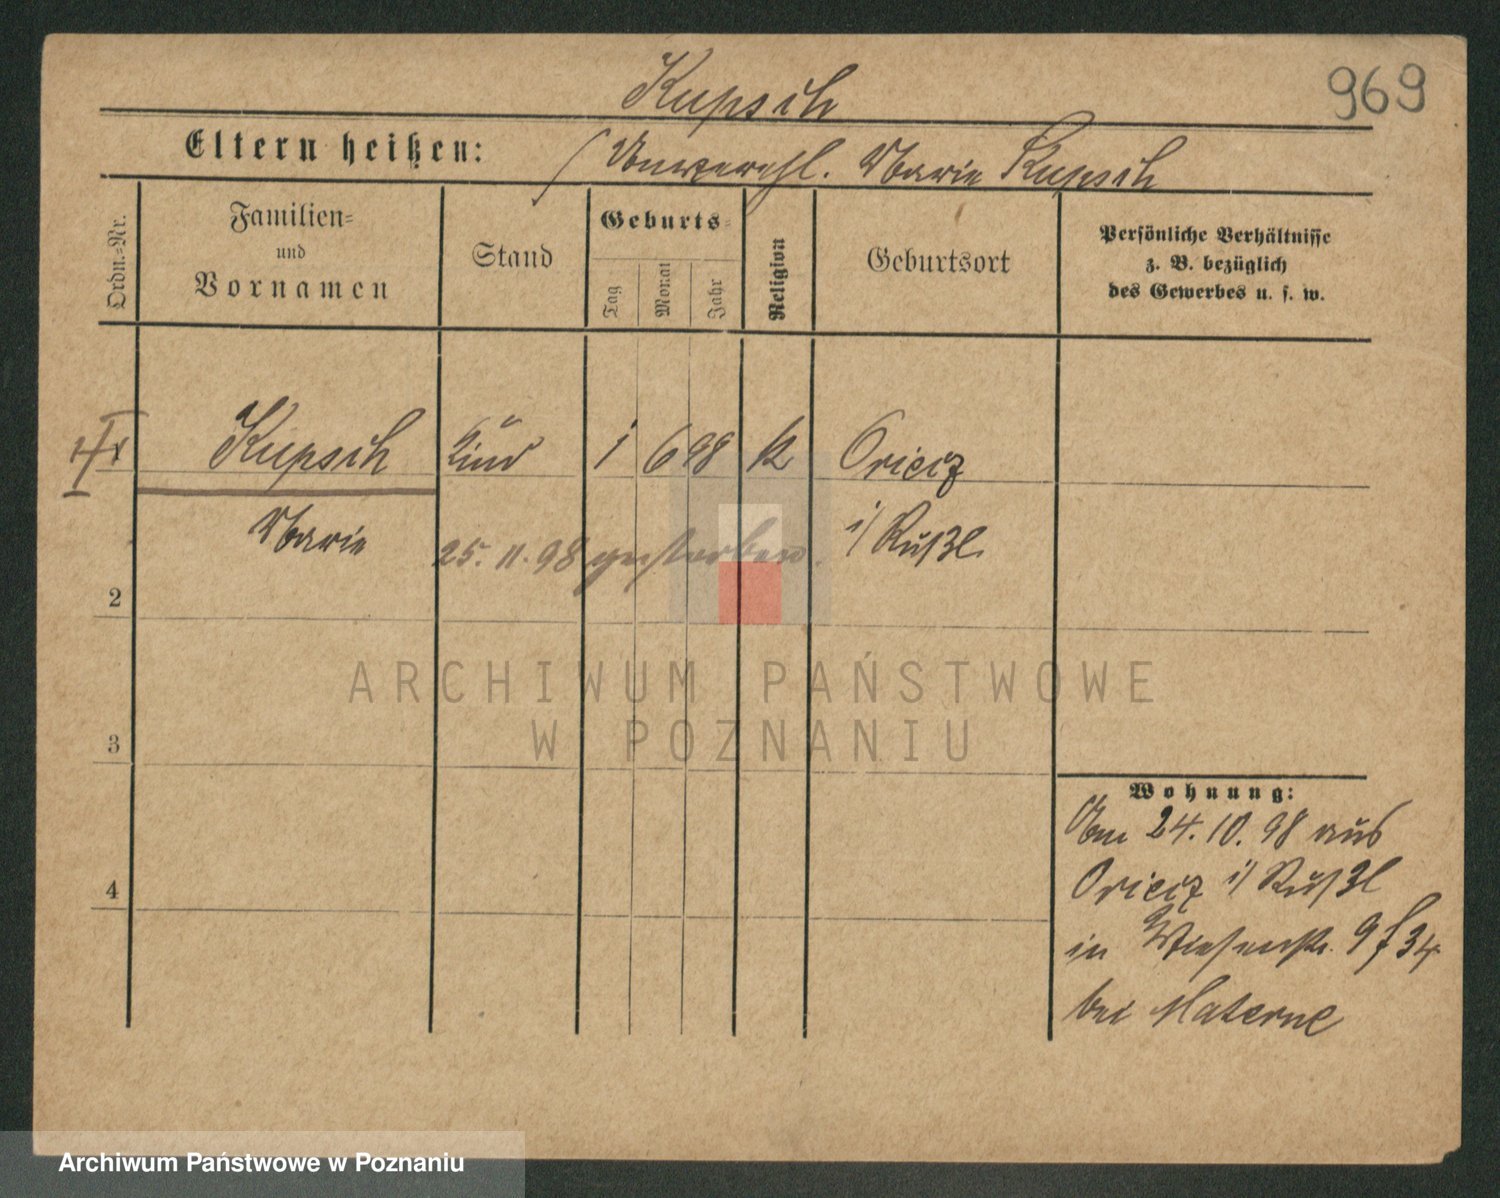 Kupsch
969
Eltern heißen: (Unverehl. Marie Kupsch
Ordn.=Nr.
Familien=
und
Vornamen
Stand
Geburts=
Tag
Monat
Jahr
Religion
Geburtsort
Persönliche Verhältnisse
z. B. bezüglich
des Gewerbes u. s. w.
Kupsch Kind 1 6 98 k
Marie i/Rußl.
25. 11. 98 gestorben.
2
3
4
Wohnung:
Am 24. 10. 98 aus
i/Rußl
in Wiesenstr. 9 f 34
bei Materne
ARCHIWUM PAŃSTWOWE
W POZNANIU
Archiwum Państwowe w Poznaniu